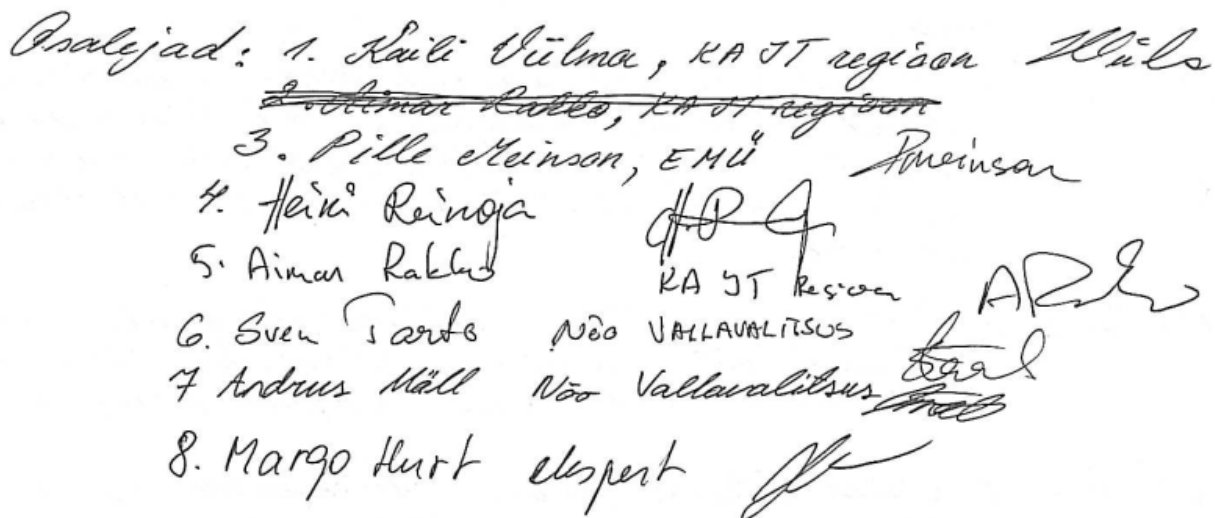 Osalejad: 1. Kaili Viilma, KA JT regioon
2. Aimar Rakko, KA JT regioon
3. Pille Meinson, EMÜ PMeinson
4. Heiki Reinoja
5. Aimar Rakko KA JT Regioon
6. Sven Tarto Nõo VALLAVALITSUS
7 Andrus Mäll Nõo Vallavalitsus
8. Margo Hurt ekspert